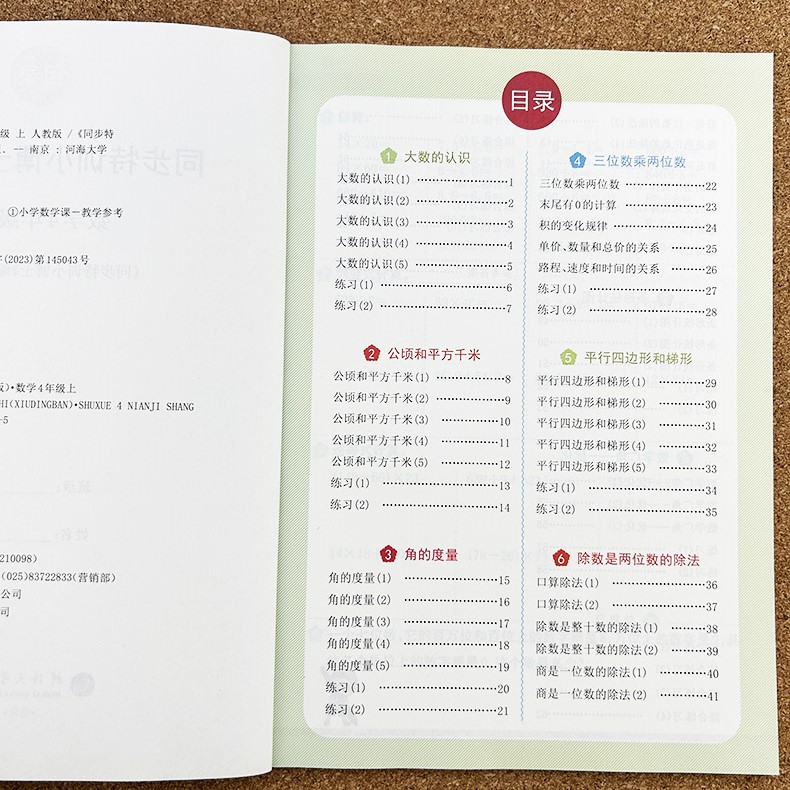 级 上 人教版 /《同步特
. -- 南京 : 河海大学
①小学数学课－教学参考
(2023)第145043号
)·数学4年级上
HI(XIUDINGBAN)·SHUXUE 4 NIANJI SHANG
-5
210098)
(025)83722833(营销部)
公司
司
目录
1 大数的认识
大数的认识(1) ……………1
大数的认识(2) ……………2
大数的认识(3) ……………3
大数的认识(4) ……………4
大数的认识(5) ……………5
练习(1) ……………6
练习(2) ……………7
2 公顷和平方千米
公顷和平方千米(1) ……………8
公顷和平方千米(2) ……………9
公顷和平方千米(3) ……………10
公顷和平方千米(4) ……………11
公顷和平方千米(5) ……………12
练习(1) ……………13
练习(2) ……………14
3 角的度量
角的度量(1) ……………15
角的度量(2) ……………16
角的度量(3) ……………17
角的度量(4) ……………18
角的度量(5) ……………19
练习(1) ……………20
练习(2) ……………21
4 三位数乘两位数
三位数乘两位数 ……………22
末尾有0的计算 ……………23
积的变化规律 ……………24
单价、数量和总价的关系 ……25
路程、速度和时间的关系 ……26
练习(1) ……………27
练习(2) ……………28
5 平行四边形和梯形
平行四边形和梯形(1) ………29
平行四边形和梯形(2) ………30
平行四边形和梯形(3) ………31
平行四边形和梯形(4) ………32
平行四边形和梯形(5) ………33
练习(1) ……………34
练习(2) ……………35
6 除数是两位数的除法
口算除法(1) ……………36
口算除法(2) ……………37
除数是整十数的除法(1) ……38
除数是整十数的除法(2) ……39
商是一位数的除法(1) ………40
商是一位数的除法(2) ………41